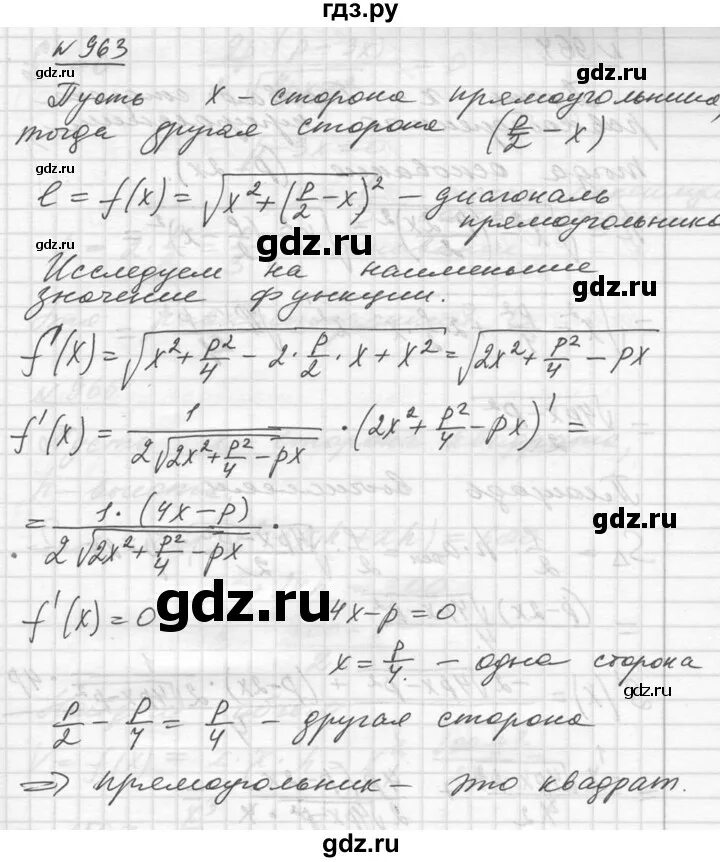 гдз.ру
№ 963
gdz.ru
gdz.ru
Пусть x – сторона прямоугольника,
тогда другая сторона (p/2 − x)
gdz.ru
gdz.ru
l = f(x) = √(x² + (p/2 − x)²) – диагональ
прямоугольника
gdz.ru
gdz.ru
Исследуем на наименьшие
значение функции.
gdz.ru
f'(x) = √(x² + p²/4 − 2·p/2·x + x²) = √(2x² + p²/4 − px)
f'(x) = 1/(2√(2x² + p²/4 − px)) · (2x² + p²/4 − px)' =
gdz.ru
gdz.ru
= 1·(4x − p)/(2√(2x² + p²/4 − px)) .
gdz.ru
gdz.ru
f'(x) = 0   4x − p = 0
x = p/4. – одна сторона
gdz.ru
gdz.ru
p/2 − p/4 = p/4 – другая сторона
⇒ прямоугольник – это квадрат.
gdz.ru
gdz.ru